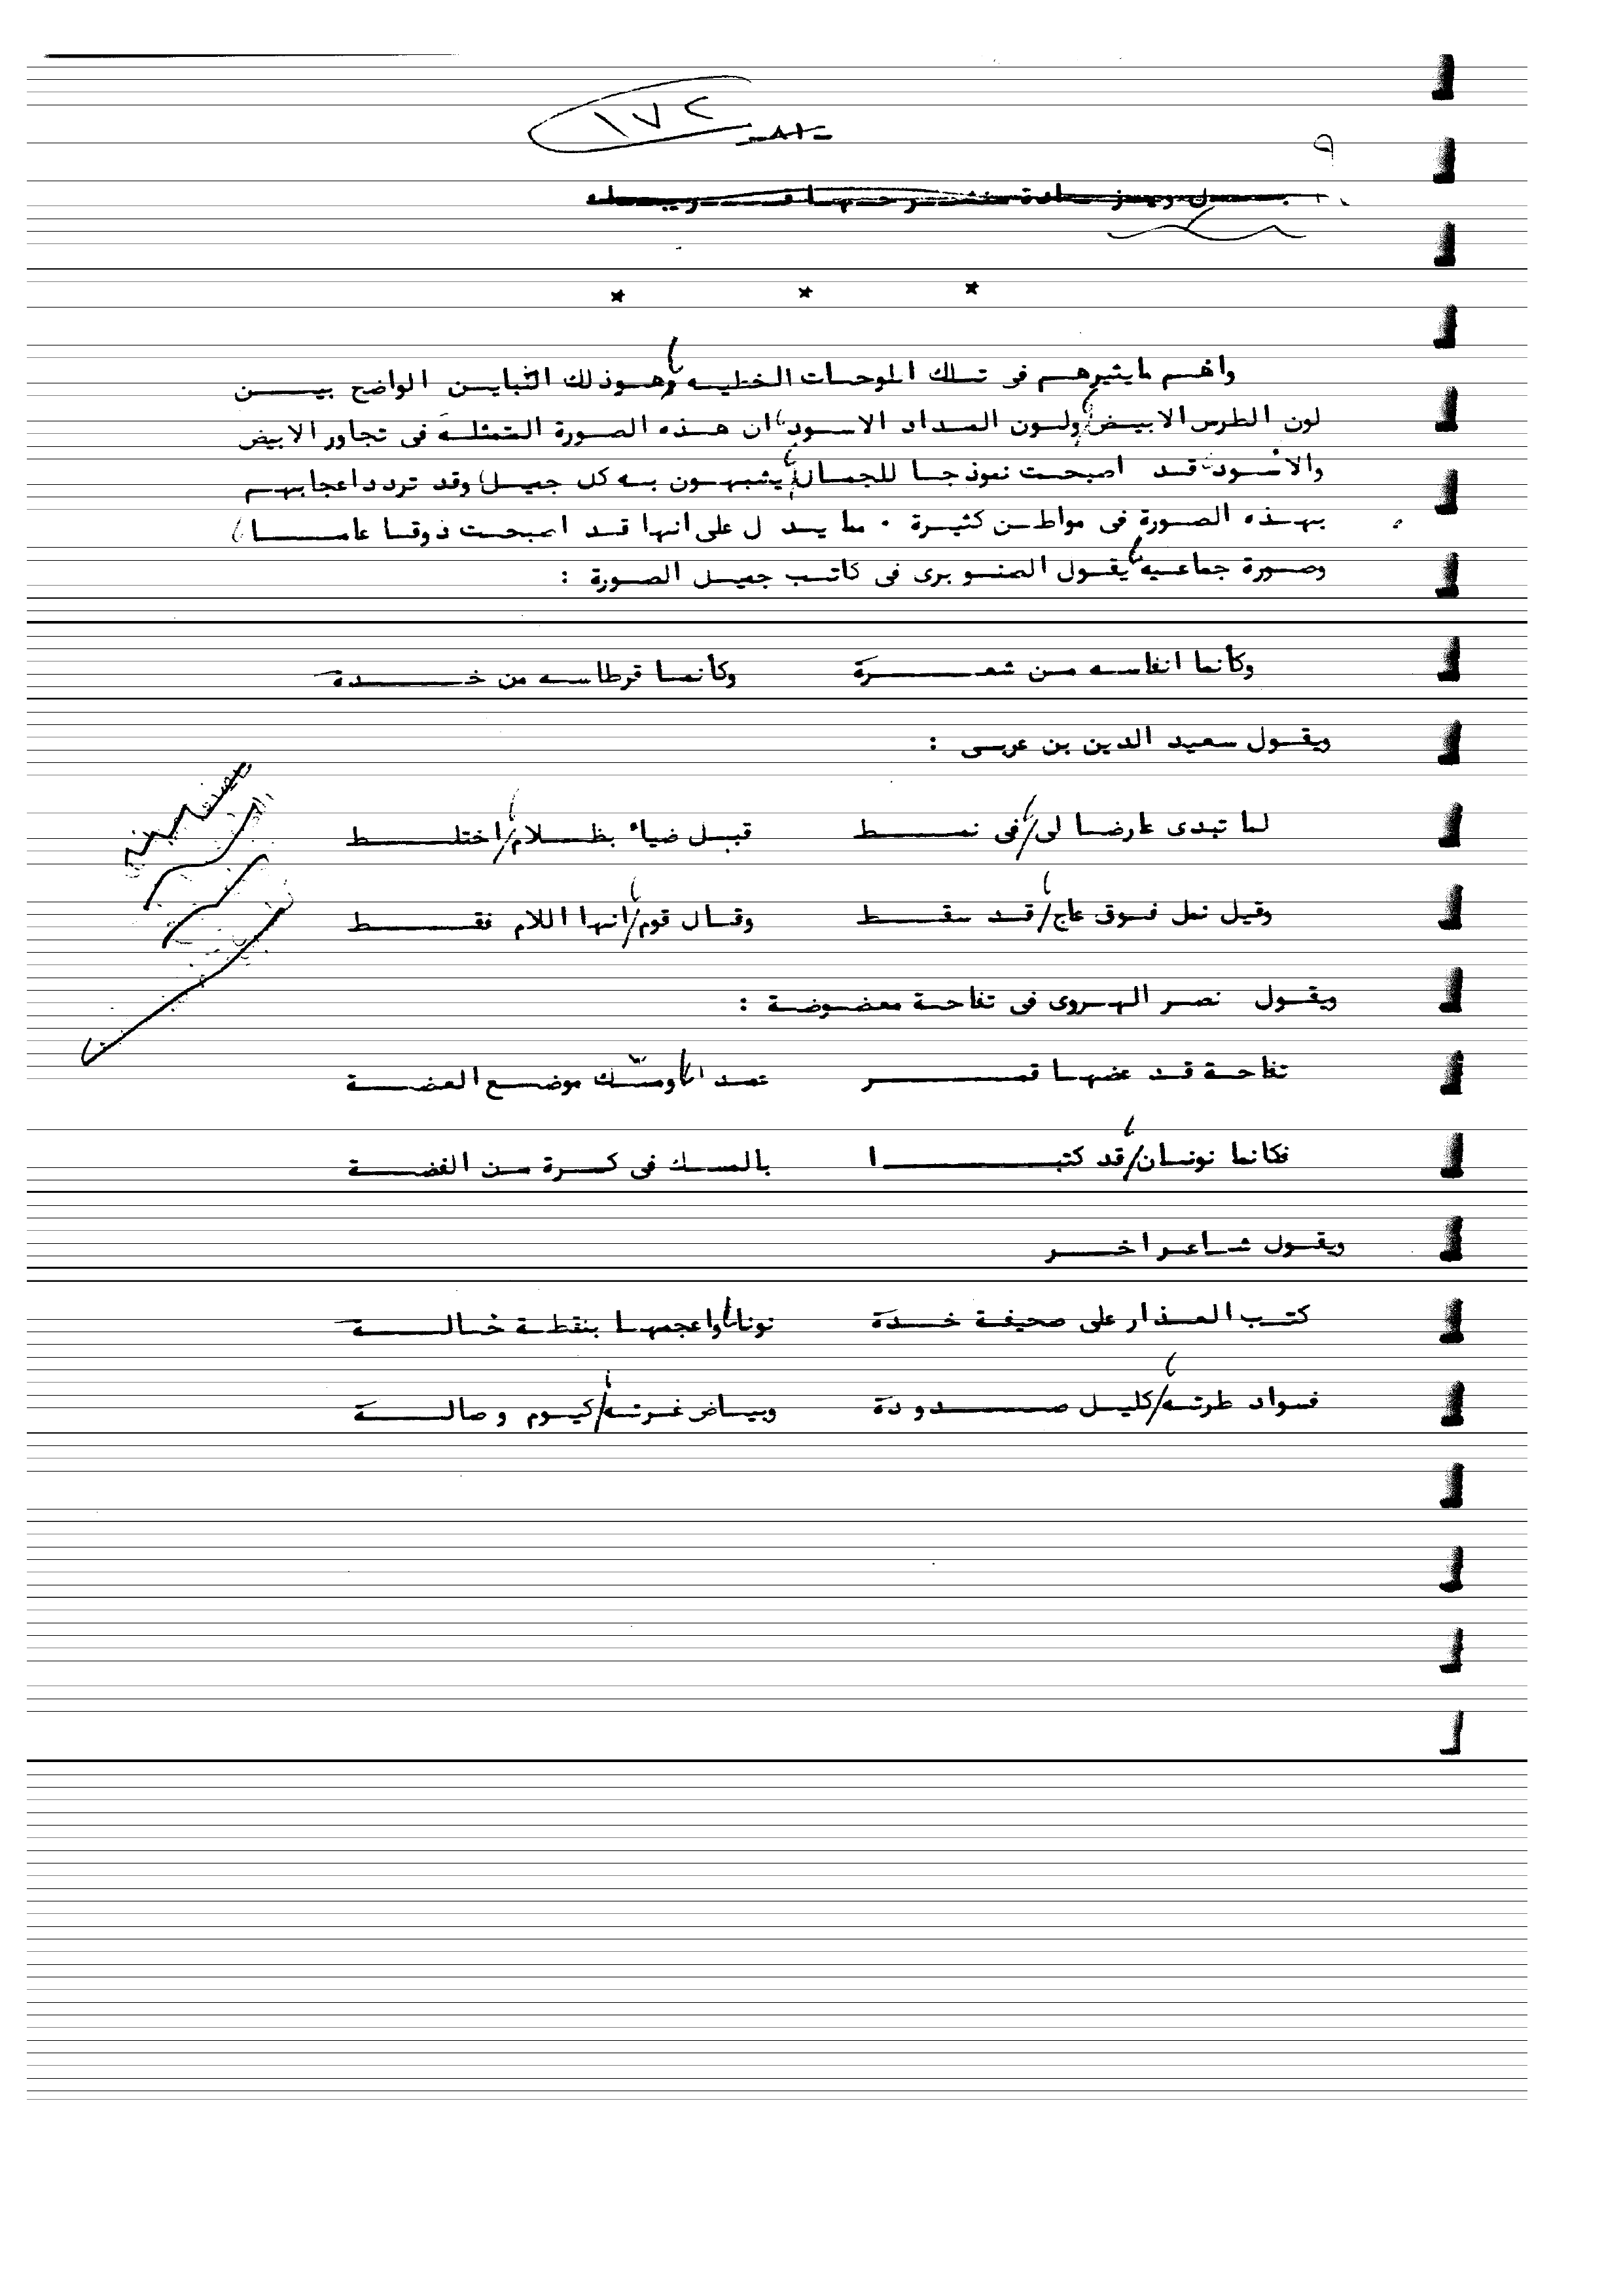 ١٧٢
-٨١-
* * *
واهم مايثيرهم فى تلك اللوحات الخطيه، وهوذلك التباين الواضح بين
لون الطرس الابيض، ولون المداد الاسود، ان هذه الصورة المتمثلة فى تجاور الابيض
والاسود، قد اصبحت نموذجا للجمال، يشبهون به كل جميل، وقد تردد اعجابهم
بهذه الصورة فى مواطن كثيرة . مما يدل على انها قد اصبحت ذوقا عاما،
وصورة جماعيه، يقول الصنوبرى فى كاتب جميل الصورة :
وكأنما انفاسه من شعرة وكأنما قرطاسه من خدة
ويقول سعيد الدين بن عربى :
لما تبدى عارضا لى، فى نمط قبل ضياء بظلام، اختلط
وقيل نمل فوق عاج، قد سقط وقال قوم، انها اللام فقط
ويقول نصر الهروى فى تفاحة معضوضة :
تفاحة قد عضها قمر موضع العضة
فكانما نونان، قد كتبا بالمسك فى كرة من الفضة
ويقول شاعر اخر
كتب العذار على صحيفة خدة نونا، واعجمها بنقطة خالة
فسواد طرته، كليل صدودة وبياض غرته، كيوم وصالة